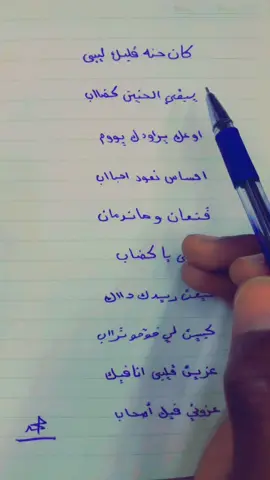 كان حنه قليل ليبى
يبقي الحنين كضاب
اوعك يراودك يووم
احساس نعود احباب
قنعان وماندمان
يا كضاب
ريدك داك
كبيت لي فوقو تراب
عزيت قلبى انا فيك
عزوني فيك أصحاب